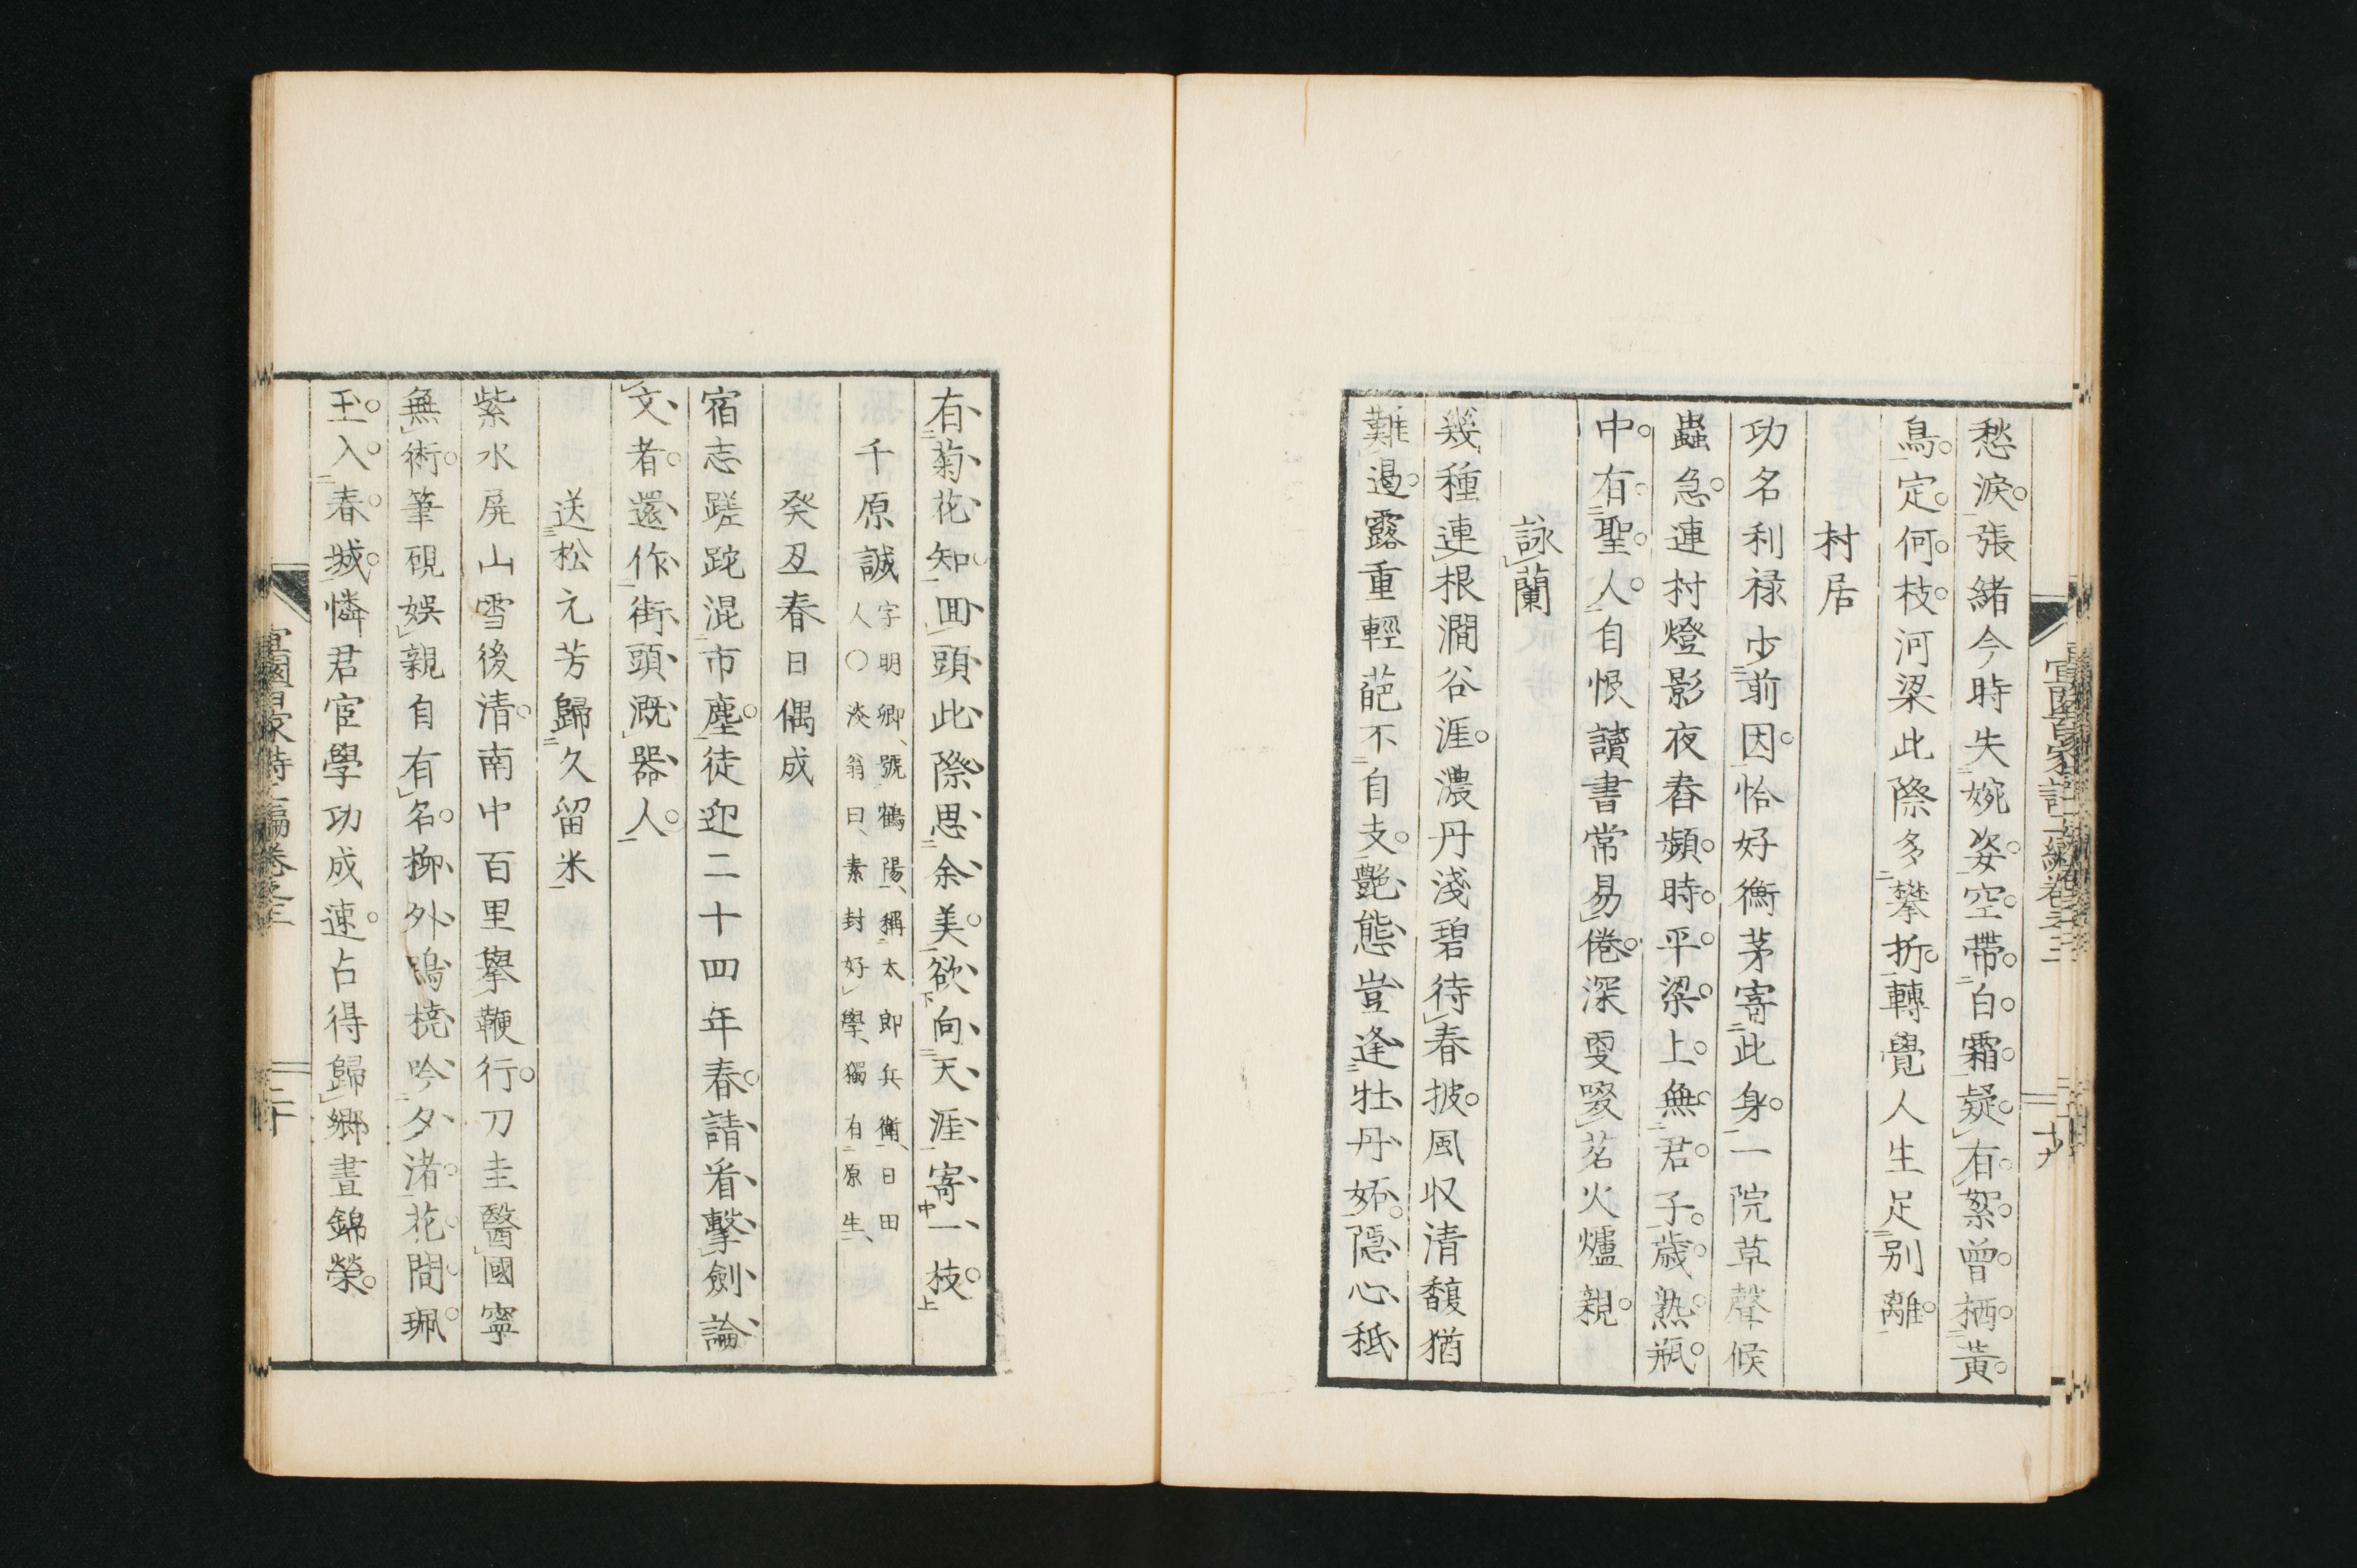 愁淚張緒今時失婉姿空帶白霜疑有絮曾栖黃
鳥定何枝河梁此際多攀折轉覺人生足別離
村居
功名利祿少前因恰好衡茅寄此身一院草聲候
蟲急連村燈影夜舂頻時平梁上無君子歲熟瓶
中有聖人自恨讀書常易倦深更啜茗火爐親
詠蘭
幾種連根澗谷涯濃丹淺碧待春披風収清馥猶
難遏露重輕葩不自支艷態豈逢牡丹妬隱心秪
有菊花知回頭此際思余美欲向天涯寄一枝
千原誠
字明卿、號鶴陽、稱太郎兵衛、日田
人○淡翁曰、素封好學、獨有原生、
癸丑春日偶成
宿志蹉跎混市塵徒迎二十四年春請看擊劍論
文者還作街頭溉器人
送松元芳歸久留米
紫水屏山雪後淸南中百里擧鞭行刀圭醫國寧
無術筆硯娛親自有名柳外鳴橈吟夕渚花間珮
玉入春城憐君宦學功成速占得歸鄉晝錦榮
二十